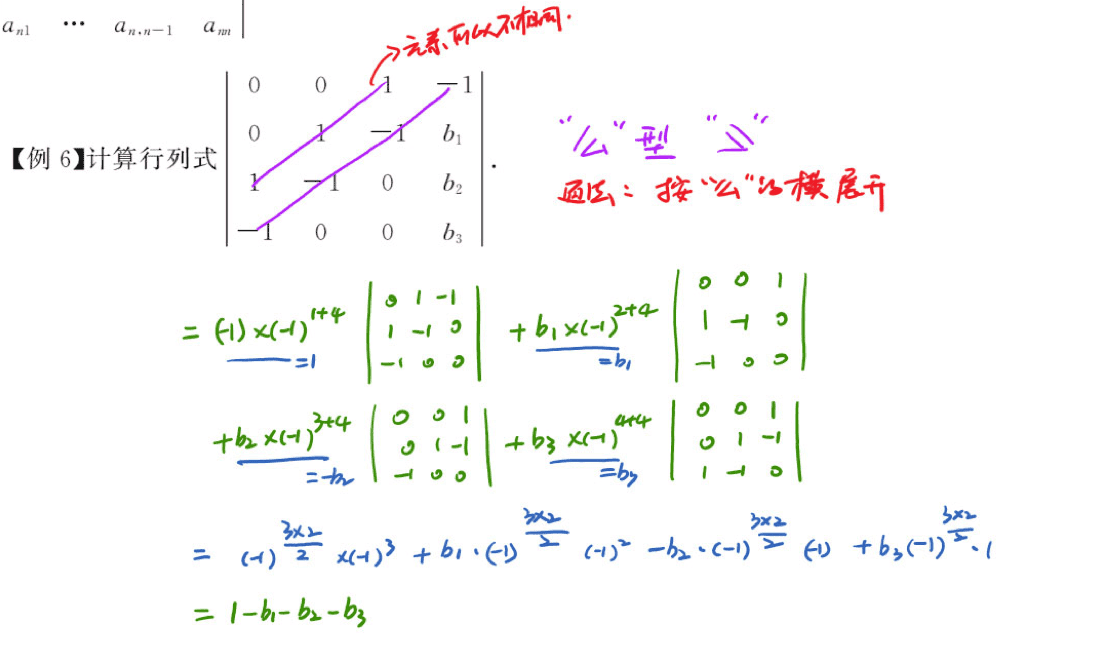 a_{n1} … a_{n,n-1} a_{nn}
→元素可以不相同.
【例 6】计算行列式
0 0 1 −1
0 1 −1 b₁
1 −1 0 b₂
−1 0 0 b₃
.
“么”型 “爻”
通法：按“么”的横展开
= (-1)×(-1)^{1+4} | 0 1 -1 | + b₁×(-1)^{2+4} | 0 0 1 |
| 1 -1 0 | | 1 -1 0 |
=1 | -1 0 0 | =b₁ | -1 0 0 |
+b₂×(-1)^{3+4} | 0 0 1 | + b₃×(-1)^{4+4} | 0 0 1 |
| 0 1 -1 | | 0 1 -1 |
=-b₂ | -1 0 0 | =b₃ | 1 -1 0 |
= (-1)^{3×2/2} ×(-1)³ + b₁·(-1)^{3×2/2} (-1)² −b₂·(-1)^{3×2/2} (-1) + b₃(-1)^{3×2/2}·1
= 1−b₁−b₂−b₃